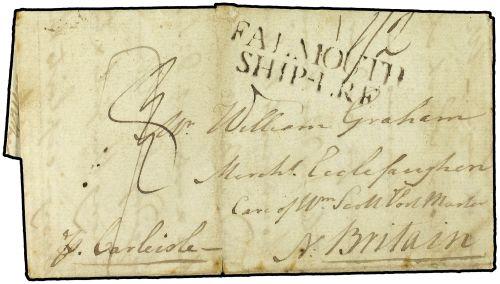 FALMOUTH
SHIP-LRE
Mr. William Graham
Merch.t Ecclefaughen
Care of Wm Scott Post Master
N. Britain
By Carleisle